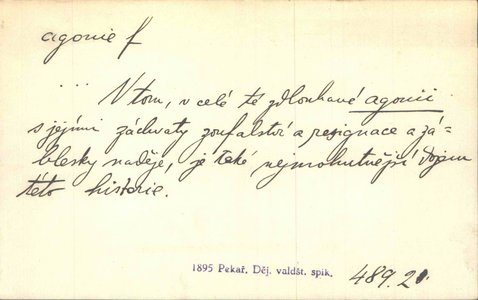 agonie f
... V tom, v celé té zdlouhavé agonii
s jejími záchvaty zoufalství a resignace a zá-
blesky naděje, je také nejmohutnější dojem
této historie.
1895 Pekař, Děj. valdšt. spik.
489.20.